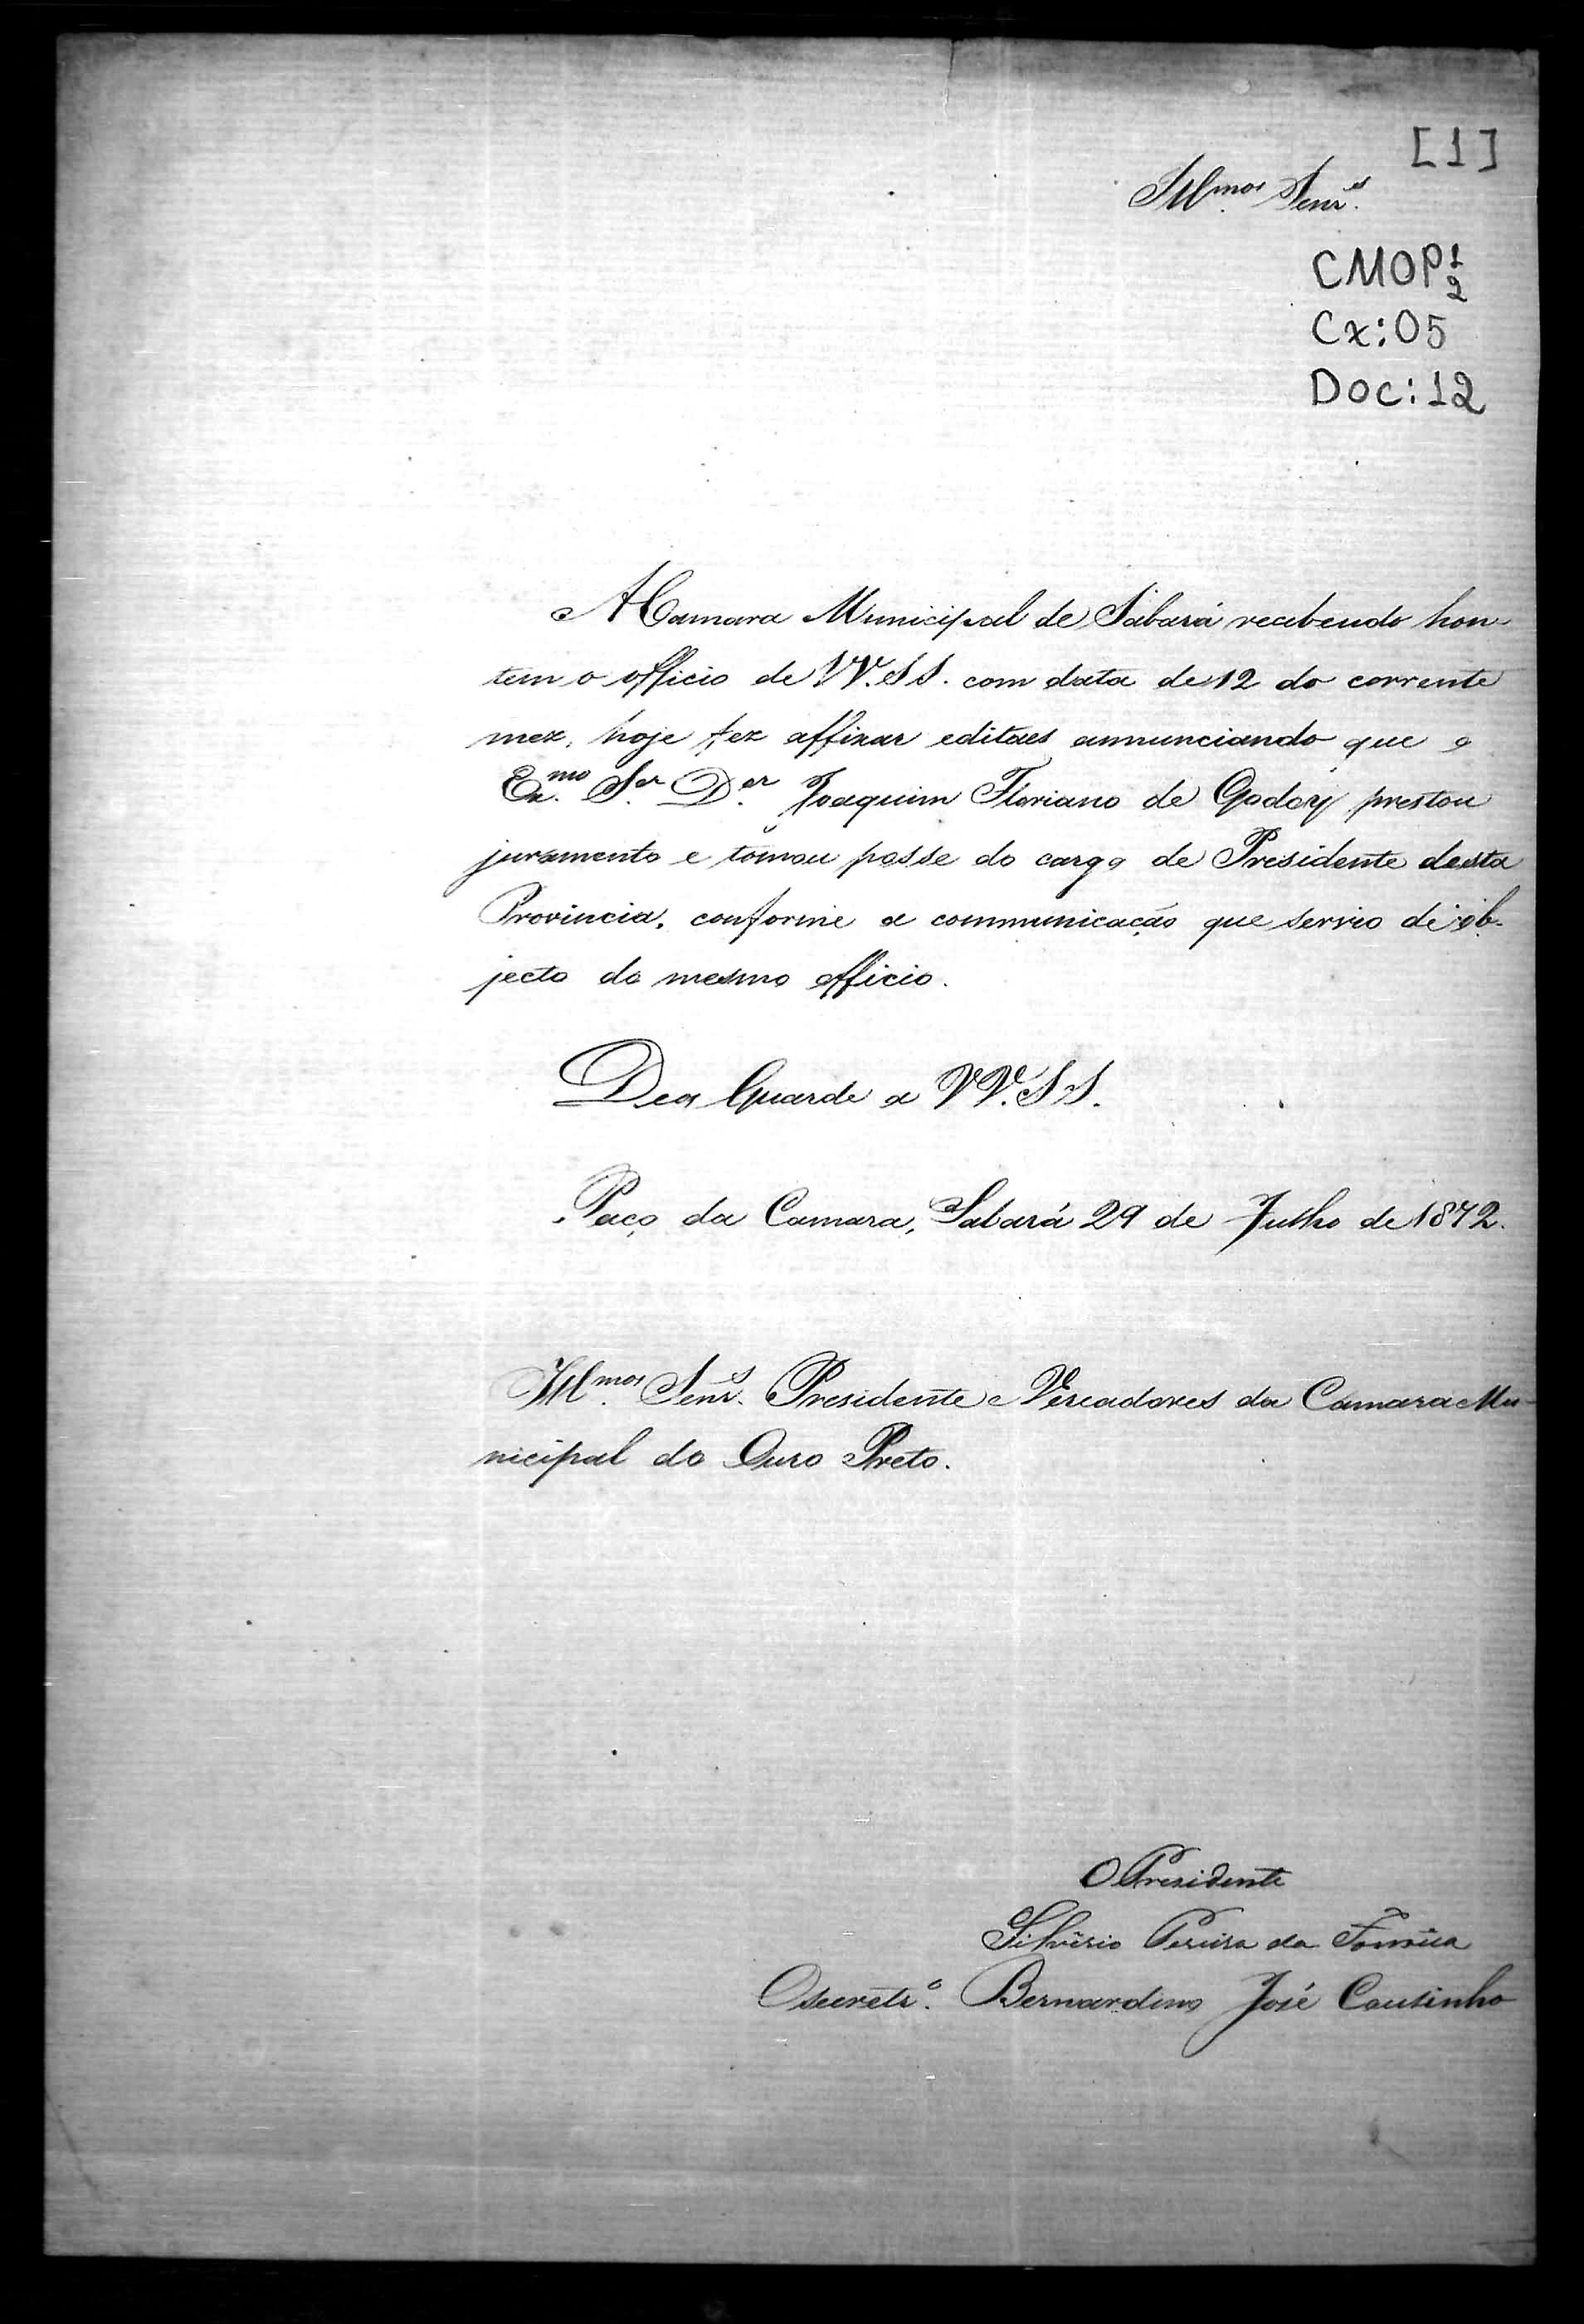 [1]
Ill.mos Senr.s
CMOP 1/2
Cx: 05
Doc: 12
A Camara Municipal de Sabará recebendo hon-
tem o officio de VV. SS. com data de 12 do corrente
mez, hoje fez affixar editaes annunciando que o
Ex.mo Sr. D.or Joaquim Floriano de Godoy prestou
juramento e tomou posse do cargo de Presidente desta
Provincia, conforme a communicação que servio de ob-
jecto do mesmo officio.
Deos Guarde a VV. SS.
Paço da Camara, Sabará 29 de Julho de 1872.
Ill.mos Senr.s Presidente e Vereadores da Camara Mu-
nicipal do Ouro Preto.
O Presidente
Silvério Pereira da Fonseca
O secretr.o Bernardino José Coutinho